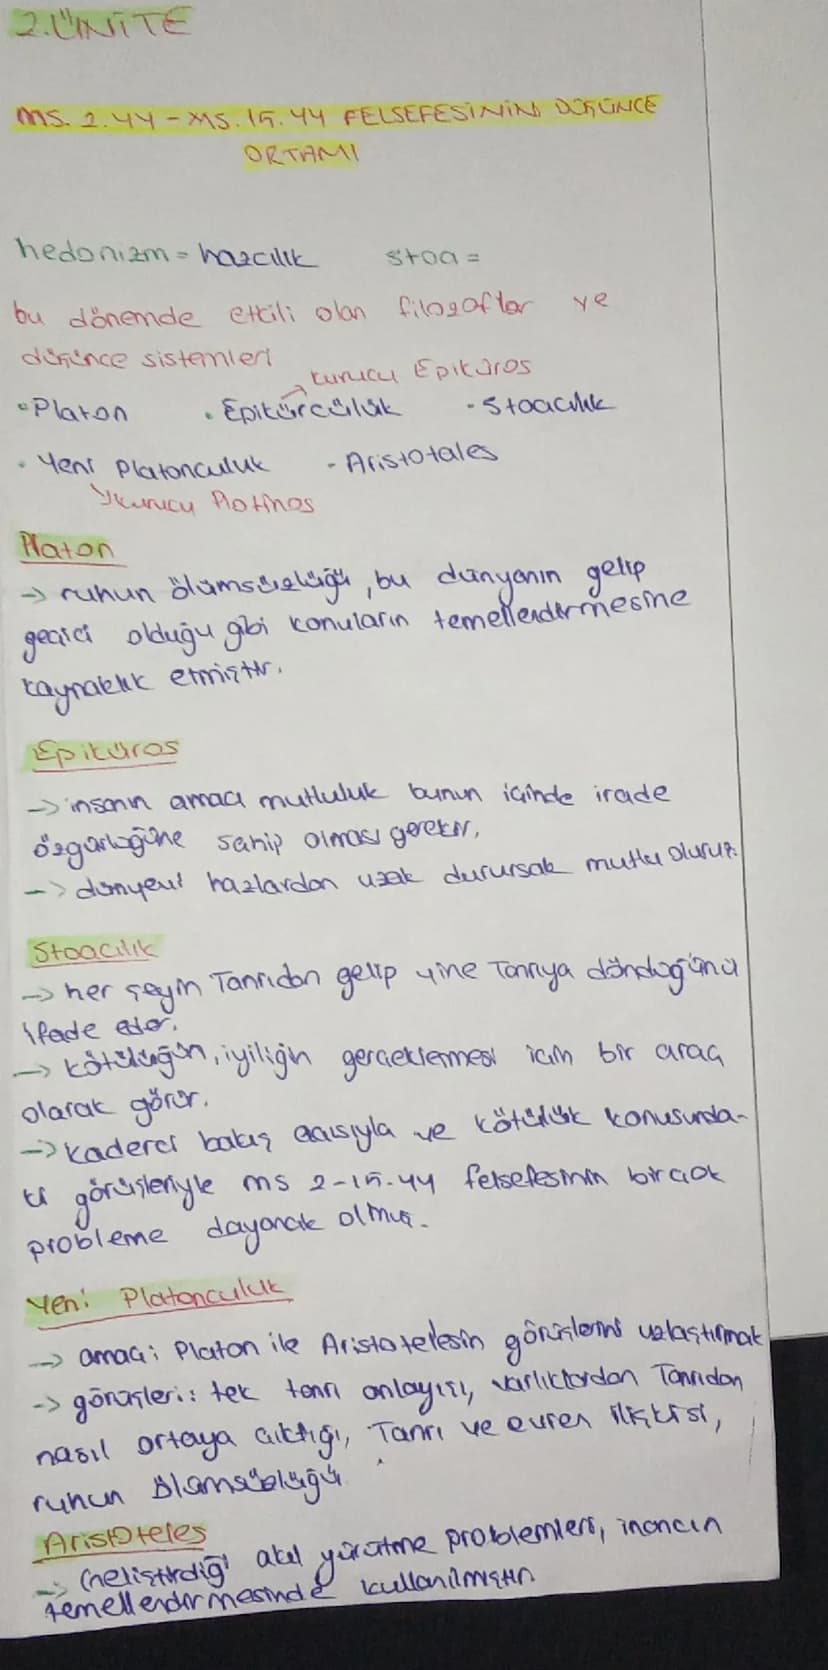 2.ÜNİTE
MS. 2.YY - MS. 15. YY FELSEFESİNİN DÜŞÜNCE
ORTAMI
hedonizm = hazcılık stoa =
bu dönemde etkili olan filozoflar ve
düşünce sistemleri
kurucu Epiküros
• Platon • Epikürcülük • Stoacılık
• Yeni Platonculuk - Aristotales
kurucu Plotinos
Platon
→ ruhun ölümsüzlüğü, bu dünyanın gelip
geçici olduğu gibi konuların temellendirmesine
kaynaklık etmiştir.
Epiküros
→ insanın amacı mutluluk bunun içinde irade
özgürlüğüne sahip olması gerekir.
→ dünyevi hazlardan uzak durursak mutlu oluruz.
Stoacılık
→ her şeyin Tanrıdan gelip yine Tanrıya döndüğünü
ifade eder.
→ kötülüğün, iyiliğin gerçeklermesi için bir araç
olarak görür.
→ kaderci bakış açısıyla ve kötülük konusunda-
ki görüşleriyle ms 2-15.yy felsefesinin birçok
probleme dayanak olmuş.
Yeni Platonculuk
→ amacı; Platon ile Aristotelesin görüşlerini uzlaştırmak
→ görüşleri: tek tanrı anlayışı, varlıklardan Tanrıdan
nasıl ortaya çıktığı, Tanrı ve evren ilişkisi,
ruhun ölümsüzlüğü
Aristoteles
→ Geliştirdiği akıl yürütme problemleri, inancın
temellendirmesinde kullanılmıştır